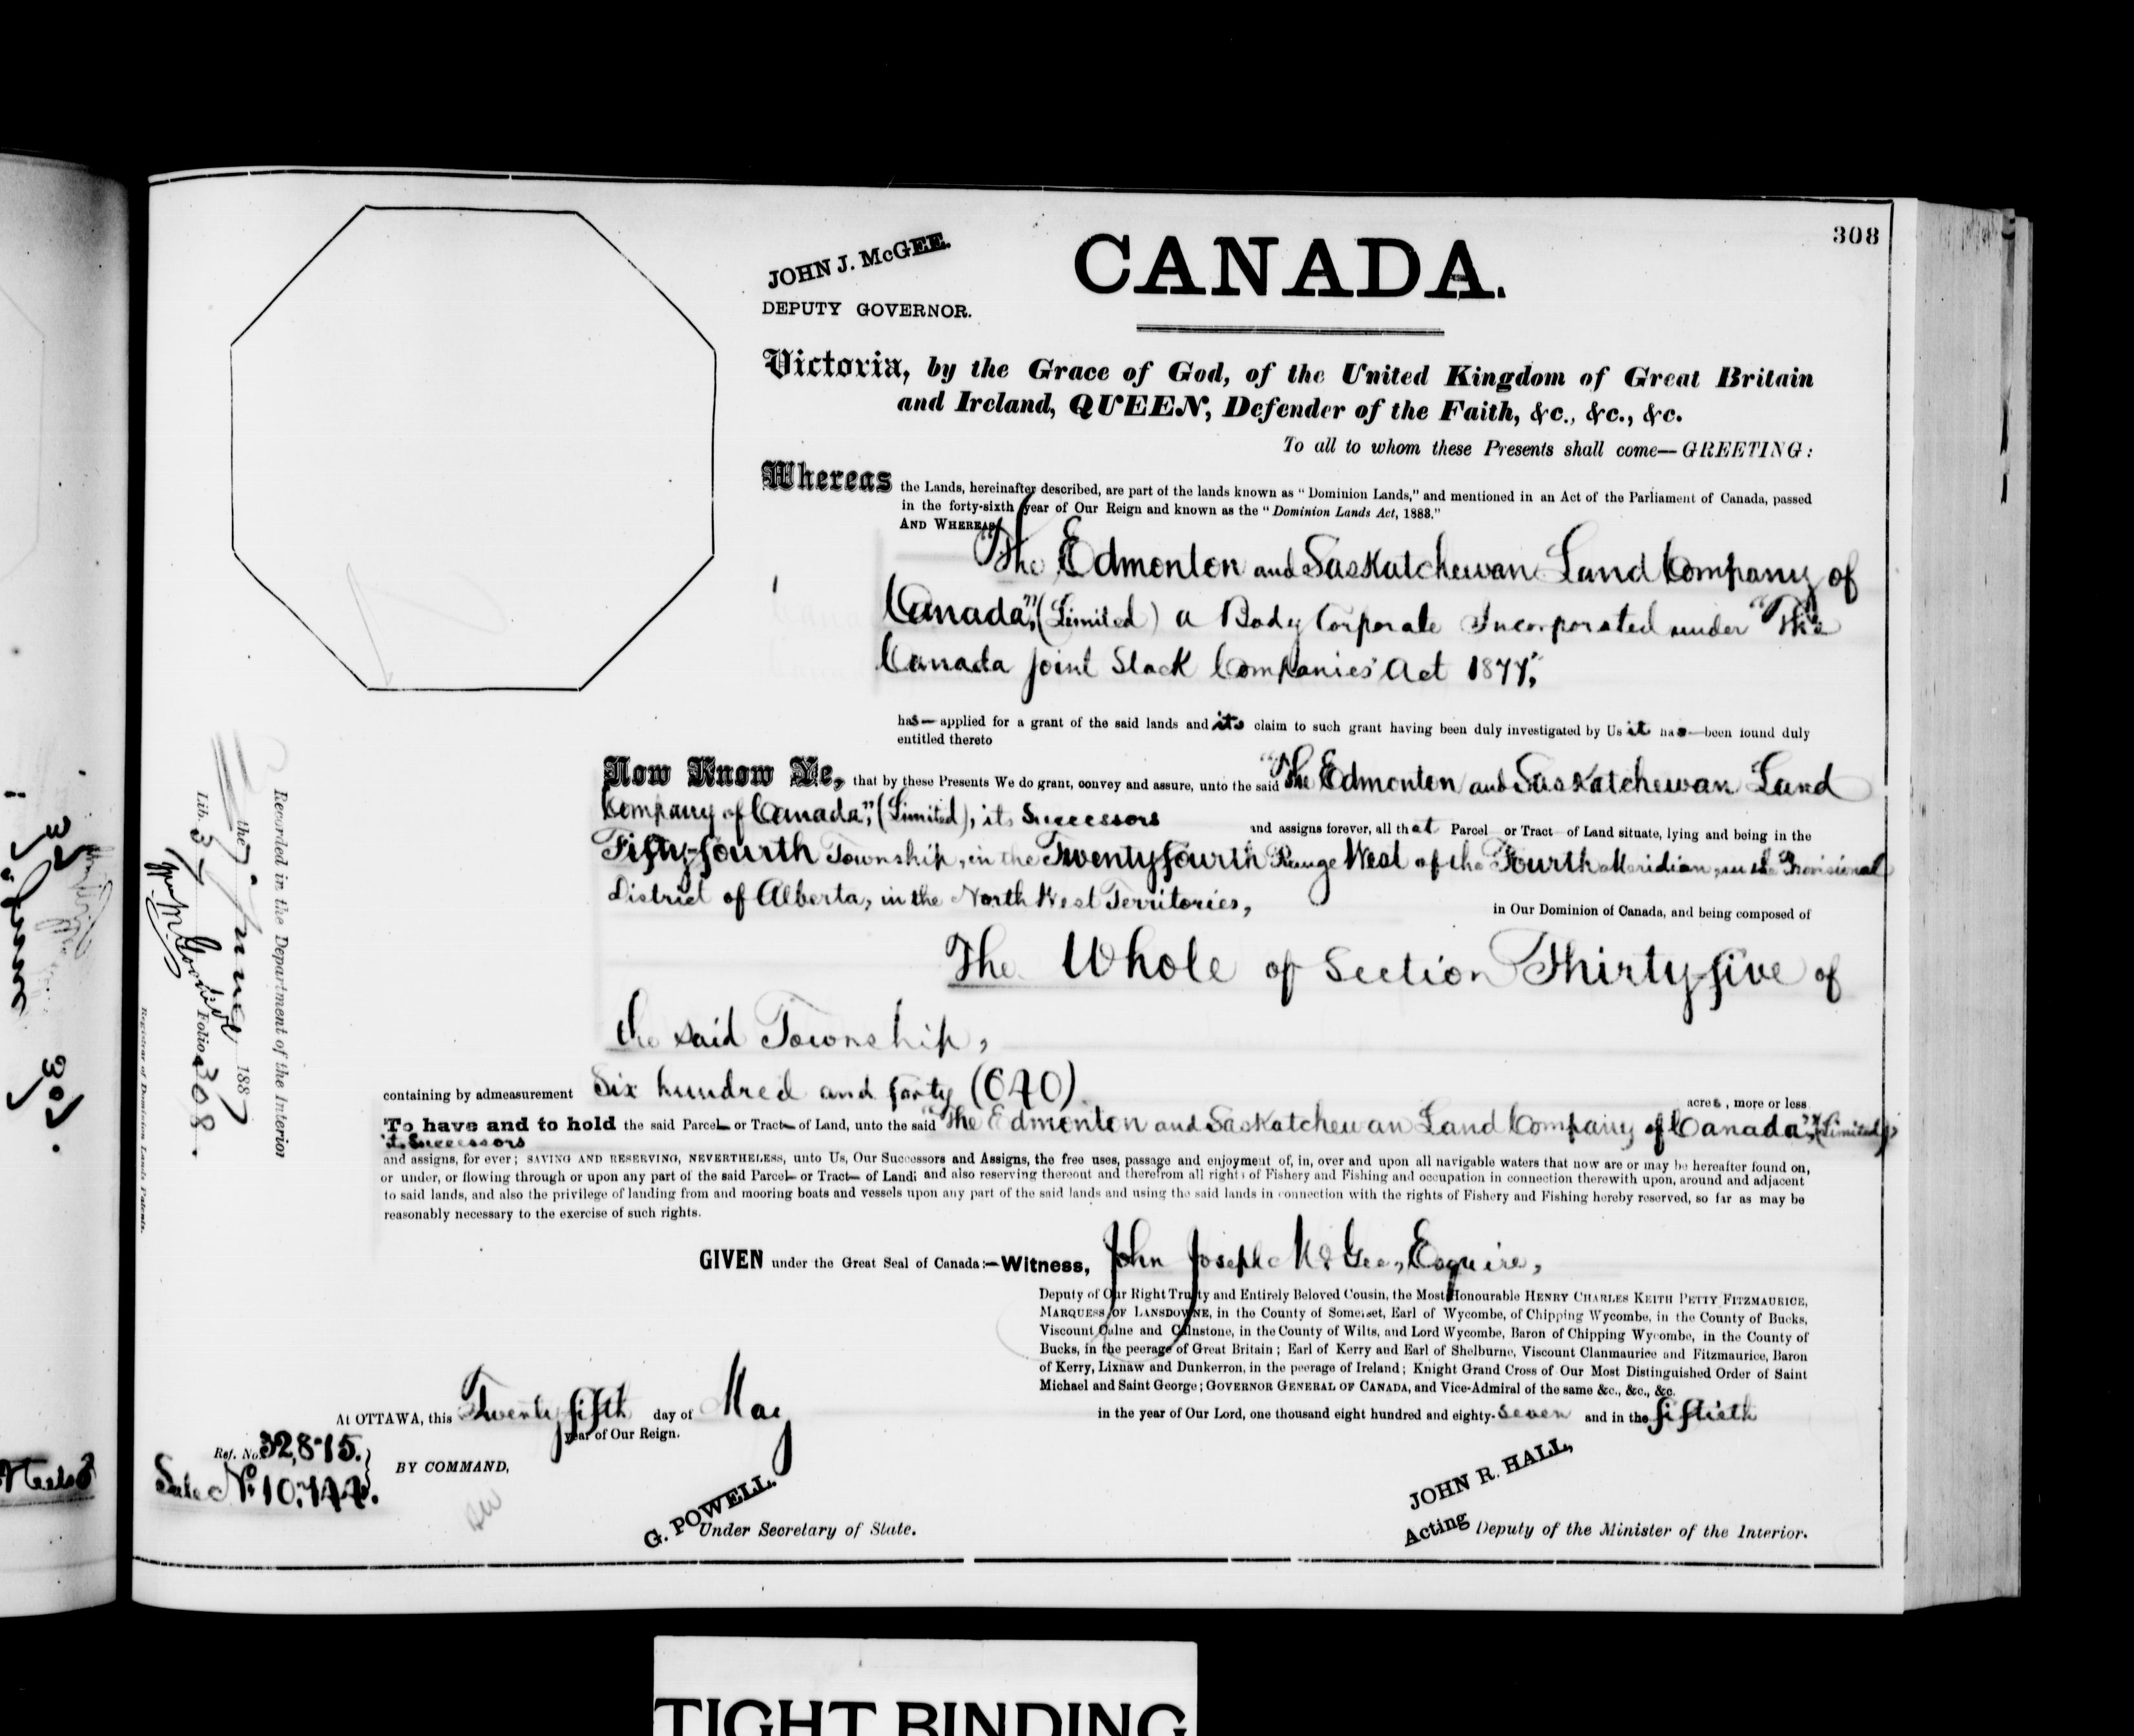 308
JOHN J. McGEE.
DEPUTY GOVERNOR.
CANADA.
Victoria, by the Grace of God, of the United Kingdom of Great Britain
and Ireland, QUEEN, Defender of the Faith, &c., &c., &c.
To all to whom these Presents shall come—GREETING:
Whereas the Lands, hereinafter described, are part of the lands known as "Dominion Lands," and mentioned in an Act of the Parliament of Canada, passed
in the forty-sixth year of Our Reign and known as the "Dominion Lands Act, 1883."
AND WHEREAS
"The Edmonton and Saskatchewan Land Company of
Canada," (Limited) a Body Corporate Incorporated under "The
Canada Joint Stock Companies' Act 1877,"
has— applied for a grant of the said lands and its claim to such grant having been duly investigated by Us it has—been found duly
entitled thereto
Now Know Ye, that by these Presents We do grant, convey and assure, unto the said "The Edmonton and Saskatchewan Land
Company of Canada," (Limited), its Successors and assigns forever, all that Parcel or Tract of Land situate, lying and being in the
Fifty-fourth Township, in the Twenty fourth Range West of the Fourth Meridian, in the Provisional
District of Alberta, in the North West Territories, in Our Dominion of Canada, and being composed of
The Whole of Section Thirty-five of
the said Township,
containing by admeasurement Six hundred and forty (640) acres, more or less
To have and to hold the said Parcel— or Tract— of Land, unto the said "The Edmonton and Saskatchewan Land Company of Canada," (Limited),
its Successors
and assigns, for ever; SAVING AND RESERVING, NEVERTHELESS, unto Us, Our Successors and Assigns, the free uses, passage and enjoyment of, in, over and upon all navigable waters that now are or may be hereafter found on,
or under, or flowing through or upon any part of the said Parcel— or Tract— of Land; and also reserving thereout and therefrom all rights of Fishery and Fishing and occupation in connection therewith upon, around and adjacent
to said lands, and also the privilege of landing from and mooring boats and vessels upon any part of the said lands and using the said lands in connection with the rights of Fishery and Fishing hereby reserved, so far as may be
reasonably necessary to the exercise of such rights.
GIVEN under the Great Seal of Canada:—Witness, John Joseph McGee, Esquire,
Deputy of Our Right Trusty and Entirely Beloved Cousin, the Most Honourable HENRY CHARLES KEITH PETTY FITZMAURICE,
MARQUESS OF LANSDOWNE, in the County of Somerset, Earl of Wycombe, of Chipping Wycombe, in the County of Bucks,
Viscount Calne and Calnstone, in the County of Wilts, and Lord Wycombe, Baron of Chipping Wycombe, in the County of
Bucks, in the peerage of Great Britain; Earl of Kerry and Earl of Shelburne, Viscount Clanmaurice and Fitzmaurice, Baron
of Kerry, Lixnaw and Dunkerron, in the peerage of Ireland; Knight Grand Cross of Our Most Distinguished Order of Saint
Michael and Saint George; GOVERNOR GENERAL OF CANADA, and Vice-Admiral of the same &c., &c., &c.
At OTTAWA, this Twenty fifth day of May in the year of Our Lord, one thousand eight hundred and eighty-seven and in the fiftieth
year of Our Reign.
Ref. No. 32,875.
Sale No.
BY COMMAND,
G. POWELL.
Under Secretary of State.
JOHN R. HALL,
Acting Deputy of the Minister of the Interior.
Recorded in the Department of the Interior
the 7 June 1887
Lib. 37 Folio 308.
Registrar of Dominion Lands Patents.
TIGHT BINDING